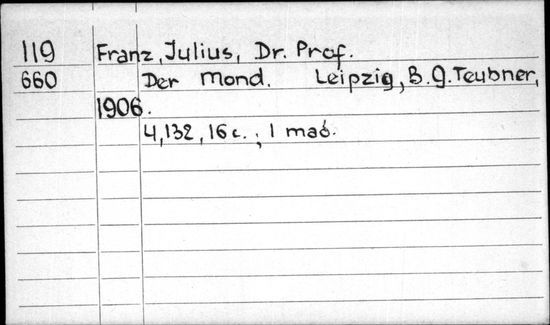 119 Franz, Julius, Dr. Prof.
660 Der Mond. Leipzig, B.G. Teubner,
1906.
4, 132, 16 с.; 1 таб.